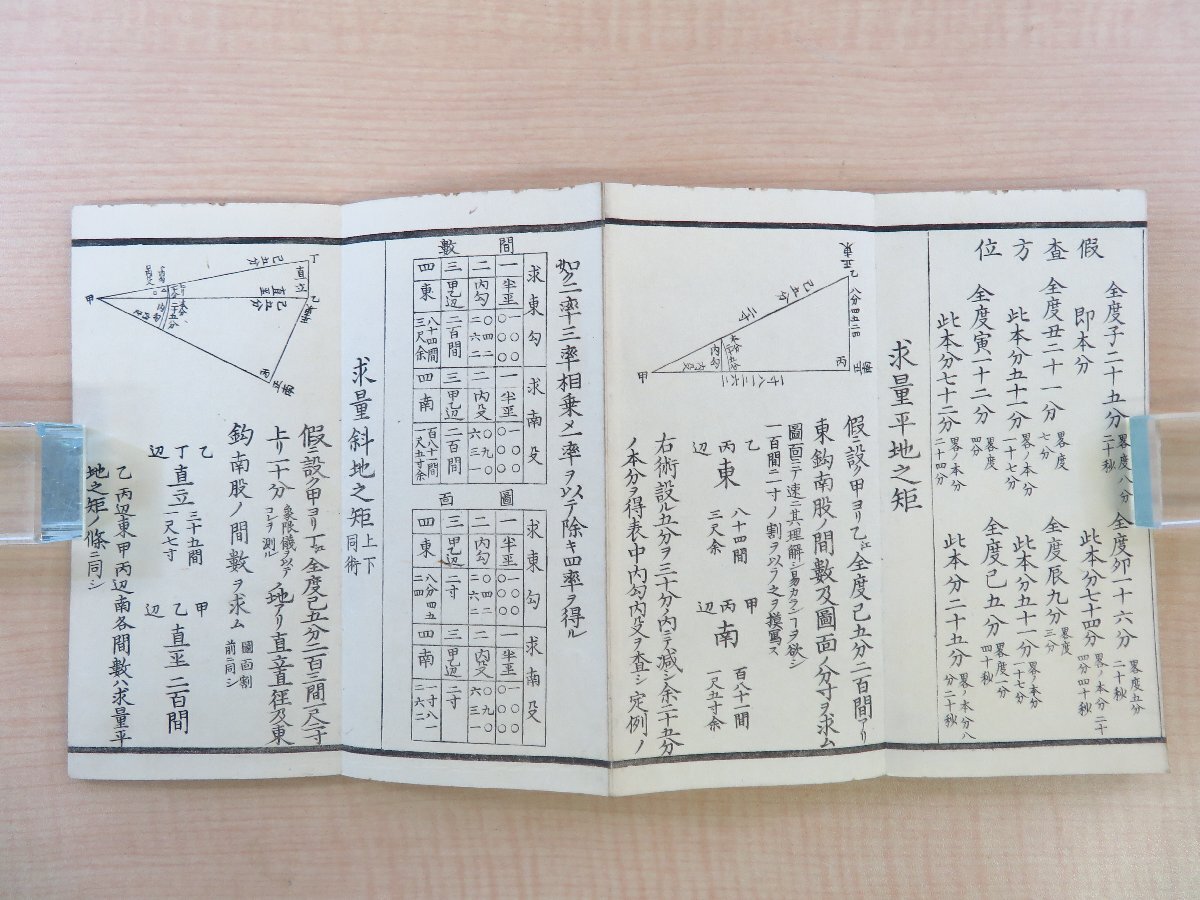 假
査
方
位
全度子二十五分 畧度八分二十秒
即本分
全度丑二十一分 畧度七分
此本分五十一分 畧ノ本分一十七分
全度寅一十二分 畧度四分
此本分七十二分 畧ノ本分二十四分
全度卯一十六分 畧度五分二十秒
此本分七十四分 畧ノ本分二十四分四十秒
全度辰九分 畧度三分
此本分五十一分 畧ノ本分一十七分
全度己五分 畧度一分四十秒
此本分二十五分 畧ノ本分八分二十秒
求量平地之矩
乙
正東
八分四五二四
己五分
二寸
丙
正南
甲
内勾
一寸八一二六二
假ニ設ク甲ヨリ乙江全度己五分二百間アリ
東鈎南股ノ間數及圖面ノ分寸ヲ求ム
圖面ニテ速ニ其理解シ易カランヿヲ欲シ
一百間ニ一寸ノ割ヲ以ラ之ヲ摸寫ス
乙丙辺 東 八十四間三尺余
甲丙辺 南 百八十一間一尺五寸余
右術設ル五分ヲ三十分ノ内ニテ減シ余二十五分
ノ本分ヲ得表中内勾内殳ヲ査シ定例ノ
如ク二率三率相乗メ一率ヲ以テ除キ四率ヲ得ル
間數
求東勾
一 半巠 一〇〇〇〇
二 内勾 〇四二二六二
三 甲乙辺 二百間
四 東 八十四間三尺余
求南殳
一 半巠 一〇〇〇〇
二 内殳 〇九〇六三一
三 甲乙辺 二百間
四 南 百八十一間一尺五寸余
圖面
求東勾
一 半巠 一〇〇〇〇
二 内勾 〇四二二六二
三 甲乙辺 二寸
四 東 八分四五二四
求南殳
一 半巠 一〇〇〇〇
二 内殳 〇九〇六三一
三 甲乙辺 二寸
四 南 一寸八一二六二
求量斜地之矩 上下同術
丁
直立
乙
正東
己五分
己五分
直巠
甲
内勾
丙
正南
假ニ設ク甲ヨリ丁江全度己五分二百三間一尺二寸
上リ一十分 象限儀ヲ以テコレヲ測ル 地アリ直立直徑及東
鈎南股ノ間數ヲ求ム 圖面割前ニ同シ
乙丁辺 直立 三十五間一尺七寸
甲乙辺 直巠 二百間
乙丙辺東甲丙辺南各間數ハ求量平
地之矩ノ條ニ同シ